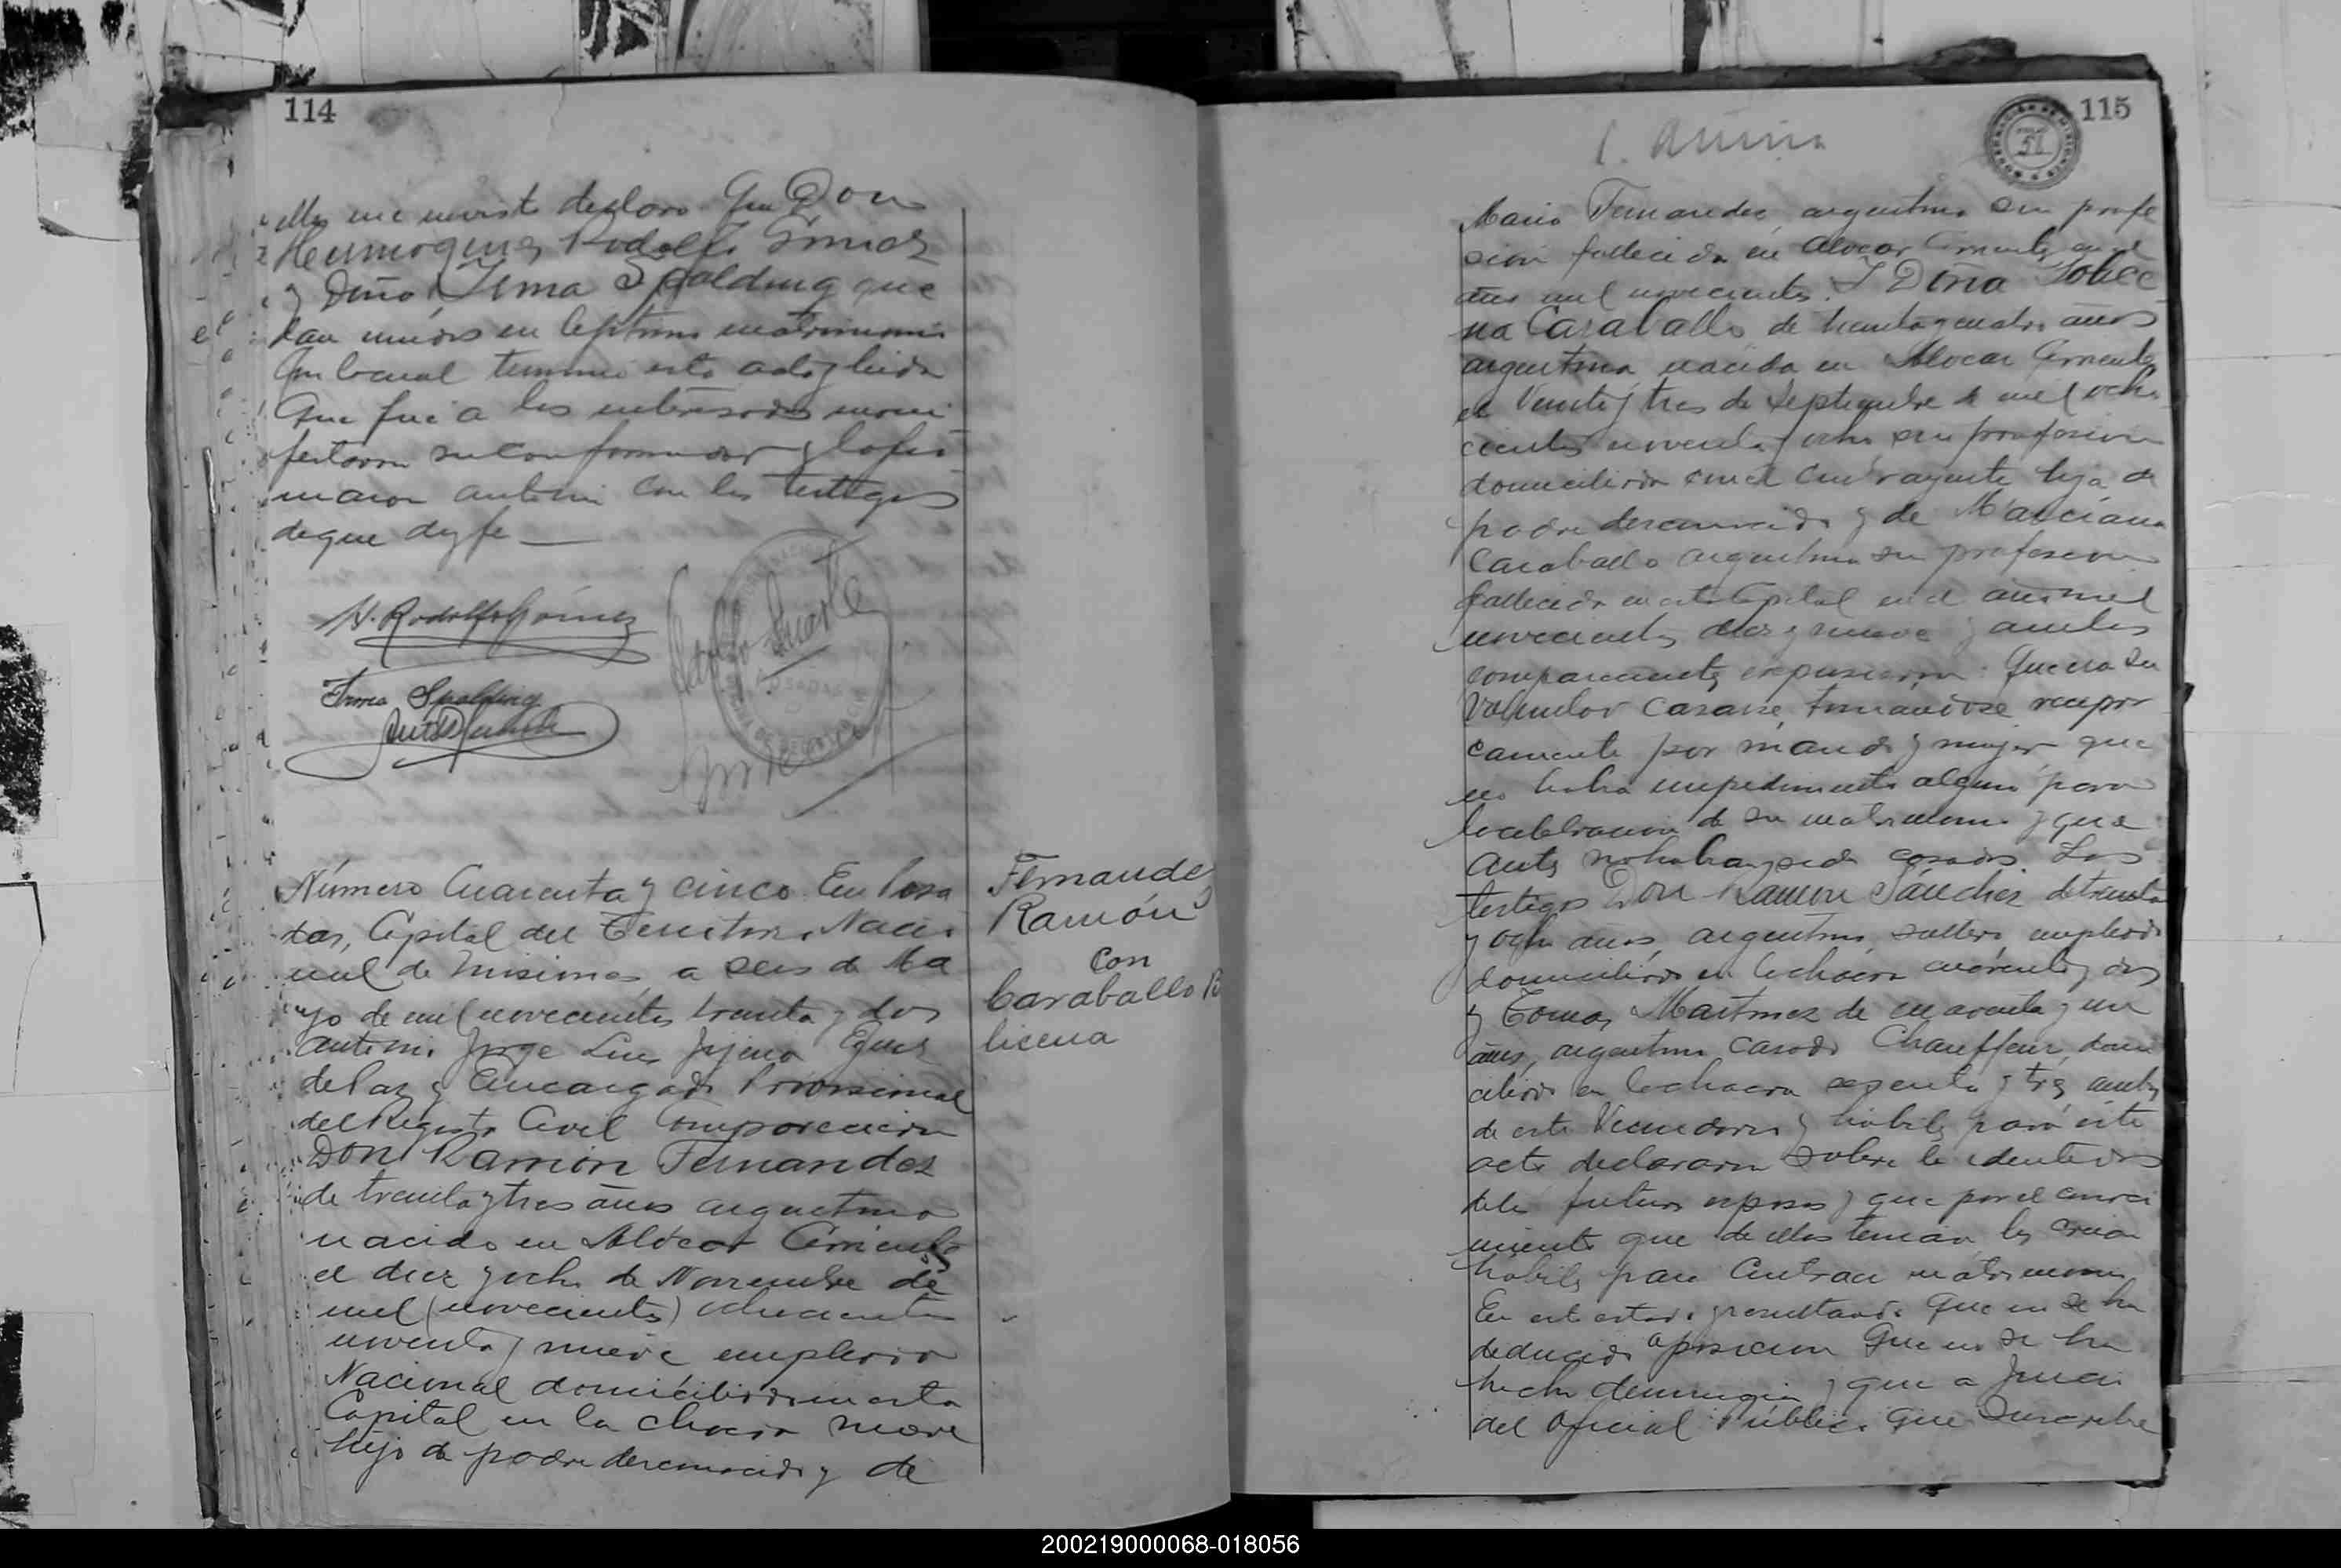 114
ellos me enviste declaro Que Don
Hermogenes Rodolfo Gómez
y Doña Irma Spalding que
dan unidos en legitimo matrimonio
Con lo cual termino este acto y leida
Que fue a los interesados mani
festaron su conformidad y la fir
maron ante mi con los testigos
de que doy fe —
H. Rodolfo Gómez
Irma Spalding
Adolfo Duarte
Número Cuarenta y cinco. En Posa
das, Capital del Territorio Nacio
nal de Misiones, a seis de Ma
yo de mil novecientos treinta y dos
ante mi Jorge Luis Juez
de Paz y Encargado Provisional
del Registro Civil Comparecieron
Don Ramón Fernandez
de treinta y tres años argentino
nacido en Alvear Corrientes
el diez y ocho de Noviembre de
mil (novecientos) ochocientos
noventa y nueve empleado
Nacional domiciliado en esta
Capital en la chacra nueve
hijo de padre desconocido y de
Fernandez
Ramón
con
Caraballo P
licena
115
51
Maria Fernandez, argentina sin profe
sion fallecida en Alvear Corrientes en el
año mil novecientos. Y Doña Police
na Caraballo de treinta y cuatro años
argentina nacida en Alvear Corrientes
el Veinte y tres de Septiembre de mil ocho
cientos noventa y ocho sin profesion
domiciliada con el contrayente hija de
padre desconocido y de Marciana
Caraballo argentina sin profesion
fallecida en esta Capital en el año mil
novecientos diez y nueve y ambos
comparecientes expusieron: Que era su
voluntad casarse, tomandose recipro
camente por marido y mujer que
no habia impedimento alguno para
la celebracion de su matrimonio y que
antes no habian sido casados. Los
testigos Don Ramon Sánchez de treinta
y ocho años, argentino, soltero, empleado
domiciliado en la chacra cuarenta y dos
y Tomas Martinez de cuarenta y un
años, argentino casado Chauffeur, domi
ciliado en la chacra sesenta y tres ambos
de este Vecindario y habiles para este
acto declararon sobre la identidad
de los futuros esposos y que por el conoci
miento que de ellos tenian, los creian
habiles para contraer matrimonio
En este estado y resultando que no se ha
deducido oposicion Que no se ha
hecho denuncia y que a juicio
del Oficial Público Que suscribe
200219000068-018056